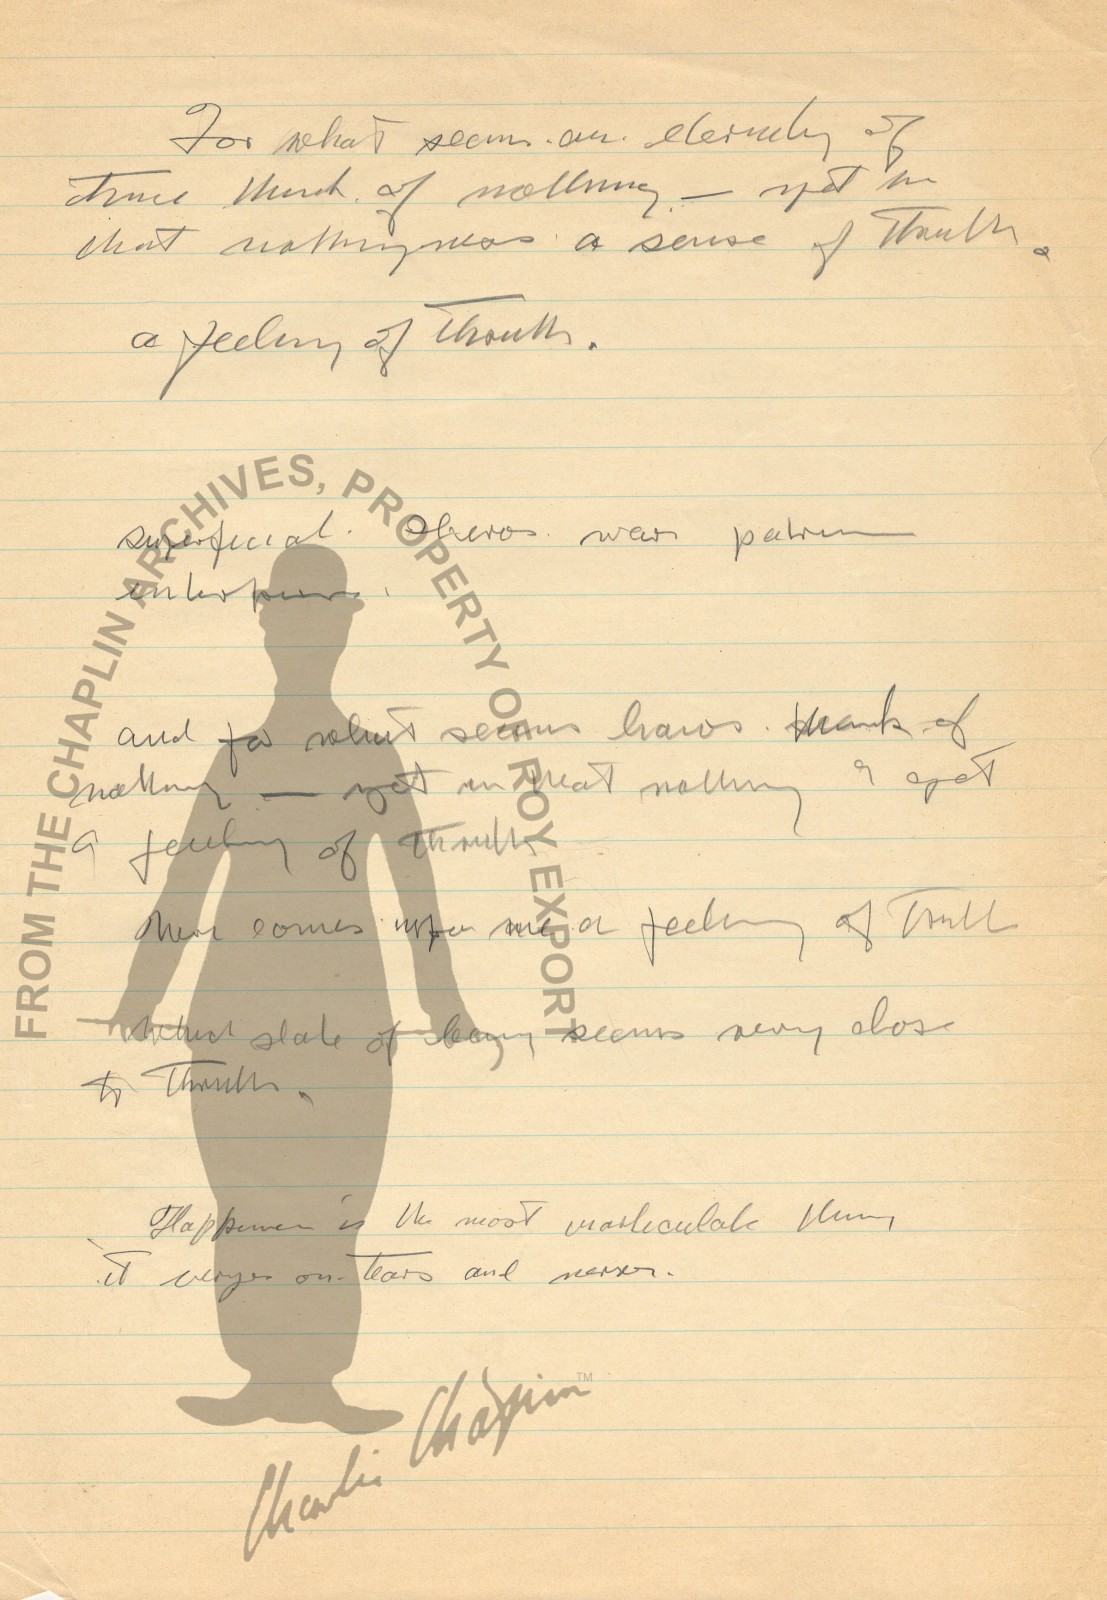 For what seems an eternity of
time think of nothing — yet in
that nothingness a sense of Truth.
a feeling of Truth.
superficial. Others was
and for what seems hours. think of
nothing — yet in that nothing yet
a feeling of Truth
there comes upon me a feeling of Truth
Which state of being seems very close
to Truth.
Happiness is the most thing
it verges on tears and
FROM THE CHAPLIN ARCHIVES, PROPERTY OF ROY EXPORT
Charlie Chaplin™